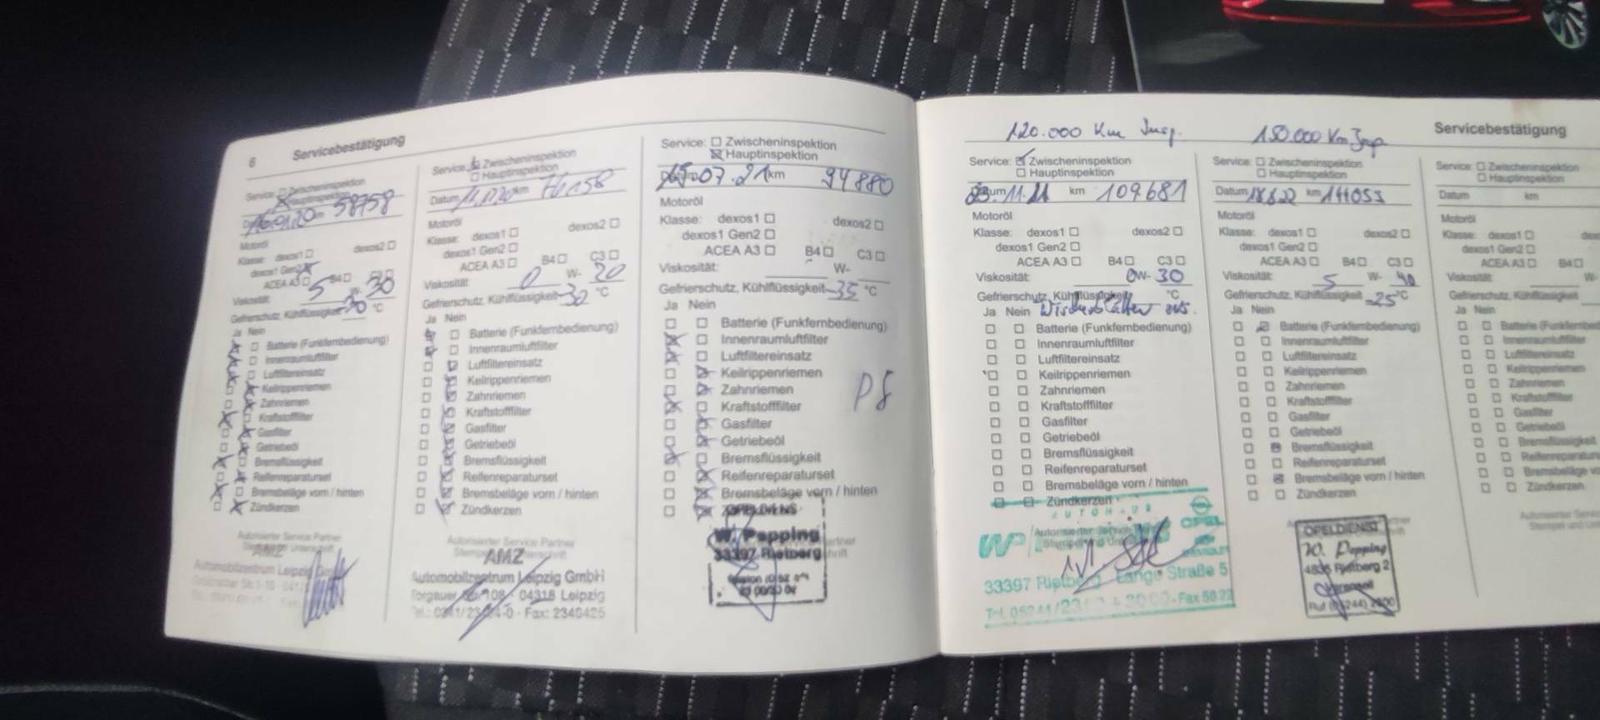 6 Servicebestätigung
Service: Zwischeninspektion
Hauptinspektion
58758
Motoröl
Klasse: dexos1 dexos2
dexos1 Gen2
ACEA A3 B4 C3
Viskosität: 5 W- 30
Gefrierschutz, Kühlflüssigkeit -30 °C
Ja Nein
Batterie (Funkfernbedienung)
Innenraumluftfilter
Luftfiltereinsatz
Keilrippenriemen
Zahnriemen
Kraftstofffilter
Gasfilter
Getriebeöl
Bremsflüssigkeit
Reifenreparaturset
Bremsbeläge vorn / hinten
Zündkerzen
Autorisierter Service Partner
AMZ
Automobilzentrum Leipzig
Service: Zwischeninspektion
Hauptinspektion
Datum km
Motoröl
Klasse: dexos1 dexos2
dexos1 Gen2
ACEA A3 B4 C3
Viskosität: 0 W- 20
Gefrierschutz, Kühlflüssigkeit -30 °C
Ja Nein
Batterie (Funkfernbedienung)
Innenraumluftfilter
Luftfiltereinsatz
Keilrippenriemen
Zahnriemen
Kraftstofffilter
Gasfilter
Getriebeöl
Bremsflüssigkeit
Reifenreparaturset
Bremsbeläge vorn / hinten
Zündkerzen
Autorisierter Service Partner
AMZ
Automobilzentrum Leipzig GmbH
Torgauer Str. 108 · 04318 Leipzig
Fax: 2340425
Service: Zwischeninspektion
Hauptinspektion
07.21 km 94880
Motoröl
Klasse: dexos1 dexos2
dexos1 Gen2
ACEA A3 B4 C3
Viskosität: W-
Gefrierschutz, Kühlflüssigkeit -35 °C
Ja Nein
Batterie (Funkfernbedienung)
Innenraumluftfilter
Luftfiltereinsatz
Keilrippenriemen
Zahnriemen
Kraftstofffilter
Gasfilter
Getriebeöl
Bremsflüssigkeit
Reifenreparaturset
Bremsbeläge vorn / hinten
OPELDIENST
W. Pepping
33397 Rietberg
Servicebestätigung
120.000 Km Insp.
Service: Zwischeninspektion
Hauptinspektion
Datum km 109681
Motoröl
Klasse: dexos1 dexos2
dexos1 Gen2
ACEA A3 B4 C3
Viskosität: 0W- 30
Gefrierschutz, Kühlflüssigkeit °C
Ja Nein Wischerblätter
Batterie (Funkfernbedienung)
Innenraumluftfilter
Luftfiltereinsatz
Keilrippenriemen
Zahnriemen
Kraftstofffilter
Gasfilter
Getriebeöl
Bremsflüssigkeit
Reifenreparaturset
Bremsbeläge vorn / hinten
Zündkerzen
AUTOHAUS
OPEL
33397 Rietberg · Lange Straße 5
150.000 Km Insp
Service: Zwischeninspektion
Hauptinspektion
Datum 18.6.22 km 144053
Motoröl
Klasse: dexos1 dexos2
dexos1 Gen2
ACEA A3 B4 C3
Viskosität: 5 W- 40
Gefrierschutz, Kühlflüssigkeit -25 °C
Ja Nein
Batterie (Funkfernbedienung)
Innenraumluftfilter
Luftfiltereinsatz
Keilrippenriemen
Zahnriemen
Kraftstofffilter
Gasfilter
Getriebeöl
Bremsflüssigkeit
Reifenreparaturset
Bremsbeläge vorn / hinten
Zündkerzen
OPELDIENST
W. Pepping
Rietberg 2
Service: Zwischeninspektion
Hauptinspektion
Datum km
Motoröl
Klasse: dexos1
dexos1 Gen2
ACEA A3 B4
Viskosität: W-
Gefrierschutz, Kühlflüssigkeit
Ja Nein
Batterie
Innenraumluftfilter
Luftfiltereinsatz
Keilrippenriemen
Zahnriemen
Kraftstofffilter
Gasfilter
Getriebeöl
Bremsflüssigkeit
Reifenreparaturset
Bremsbeläge vorn
Zündkerzen